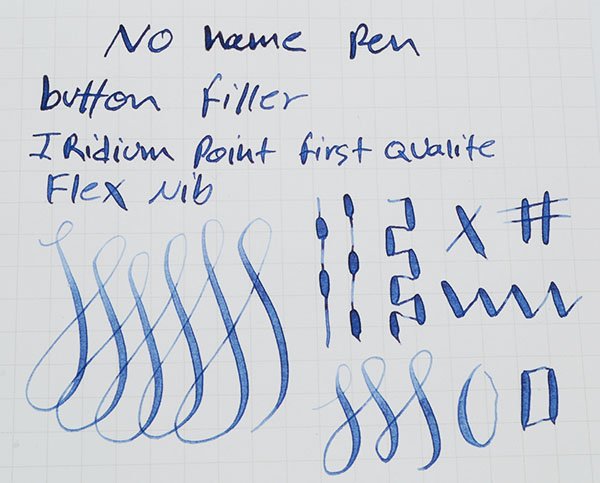 No name Pen
button filler
IRidium Point first Qualite
Flex Nib